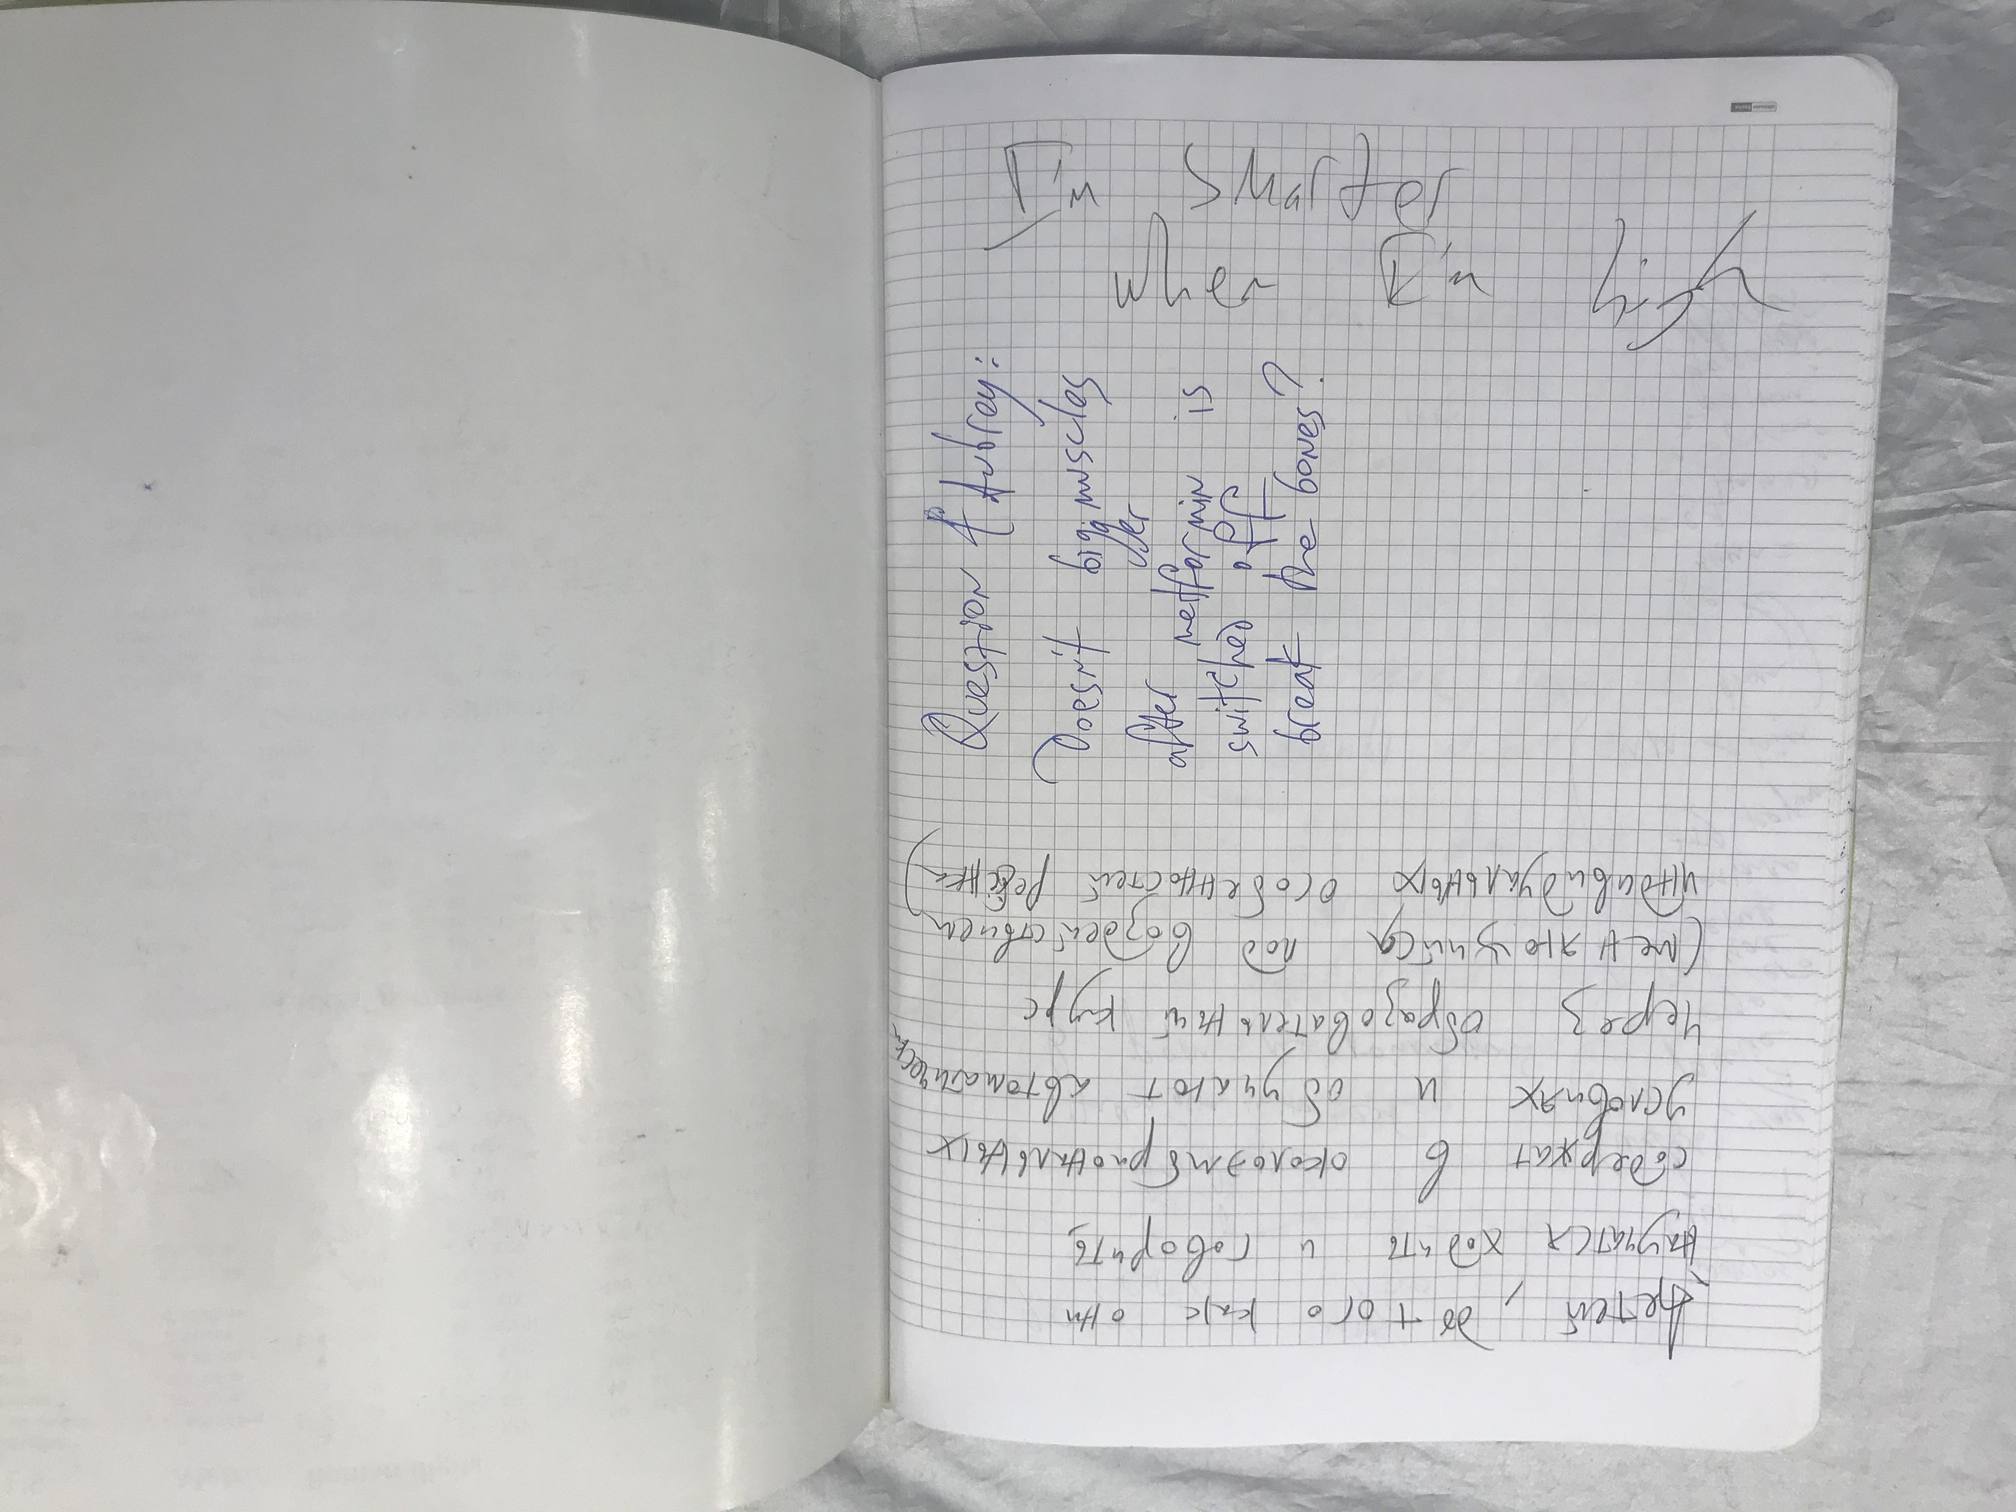 I'm smarter
when I'm high
Question 4 Aubrey:
Doesn't big muscles
after metformin is
switched off
break the bones?
Детей, до того как они
научатся ходить и говорить,
содержат в околоэмбриональных
условиях и обучают автоматически
через образовательный курс
(меняющийся под воздействием
индивидуальных особенностей ребёнка)